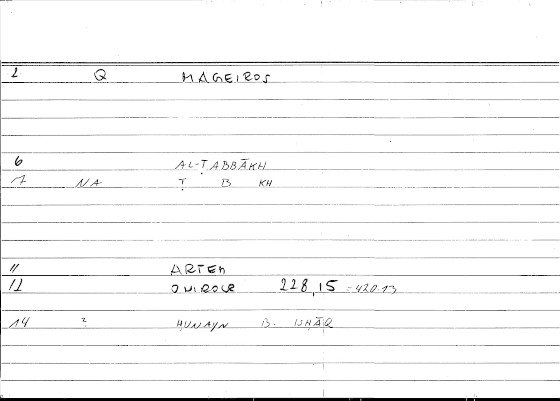 1 Q MAGEIROS
6 AL-ṬABBĀKH
7 NA Ṭ B KH
11 ARTEM
12 ONIROCR 228,15 = 420.13
14 ? ḤUNAYN B. ISḤĀQ